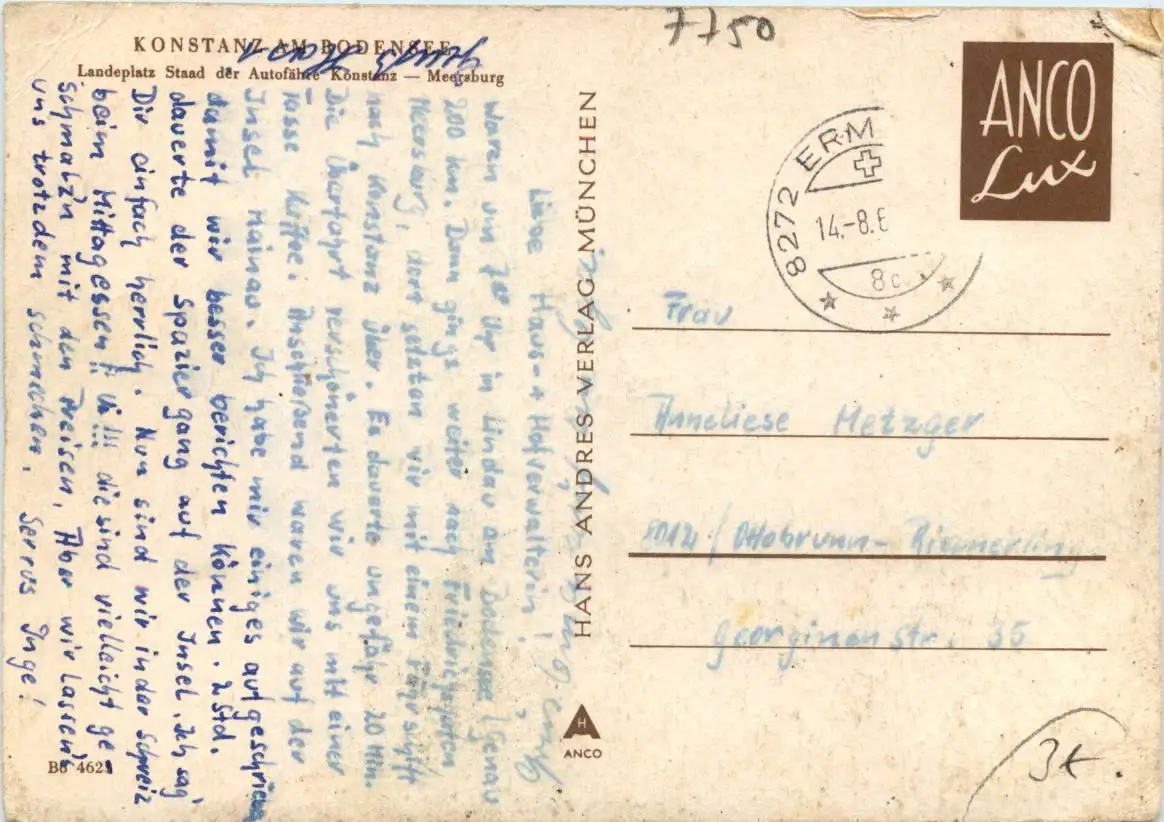 KONSTANZ AM BODENSEE
Landeplatz Staad der Autofähre Konstanz — Meersburg
7750
ANCO
Lux
8272 ERM
14.-8.6
8c
Liebe Haus- + Hofverwalterin!
Waren um 7 Uhr in Lindau am Bodensee (genau
200 km. Dann gings weiter nach Friedrichshafen
Meersburg, dort setzten wir mit einem Fährschiff
nach Konstanz über. Es dauerte ungefähr 20 Min.
Die Überfahrt verschönerten wir uns mit einer
Tasse Kaffee. Anschließend waren wir auf der
Insel Mainau. Ich habe mir einiges aufgeschrieben
damit wir besser berichten können. 2 Std.
dauerte der Spaziergang auf der Insel. Ich sag'
Dir einfach herrlich. Nun sind wir in der Schweiz
beim Mittagessen!! Ui!!! die sind vielleicht ge-
schmalz'n mit den Preisen, Aber wir lassen's
uns trotzdem schmecken. Servus Inge!
HANS ANDRES VERLAG MÜNCHEN
H
ANCO
Frau
Anneliese Metzger
8012 / Ottobrunn- Riemerling
Georginenstr. 35
Bo 4623
3€.